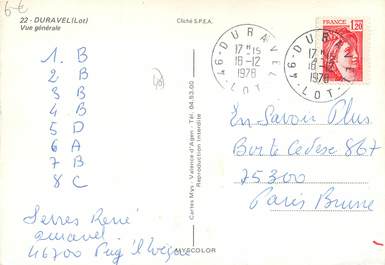 6€
22 - DURAVEL (Lot)
Vue générale
Cliché S.P.E.A.
1 B
2 B
3 B
4 B
5 D
6 A
7 B
8 C
46
Serres René
Duravel
46700 Puy l'Évêque
Cartes Mys - Valence d'Agen - Tél. 04.53.00
Reproduction interdite
MYSCOLOR
46 - DURAVEL
17 H 15
18-12
1978
LOT
46 - DURAVEL
17 H 15
18-12
1978
LOT
FRANCE
1,20
En Savoir Plus
Boîte Cedex 867
75300
Paris Brune